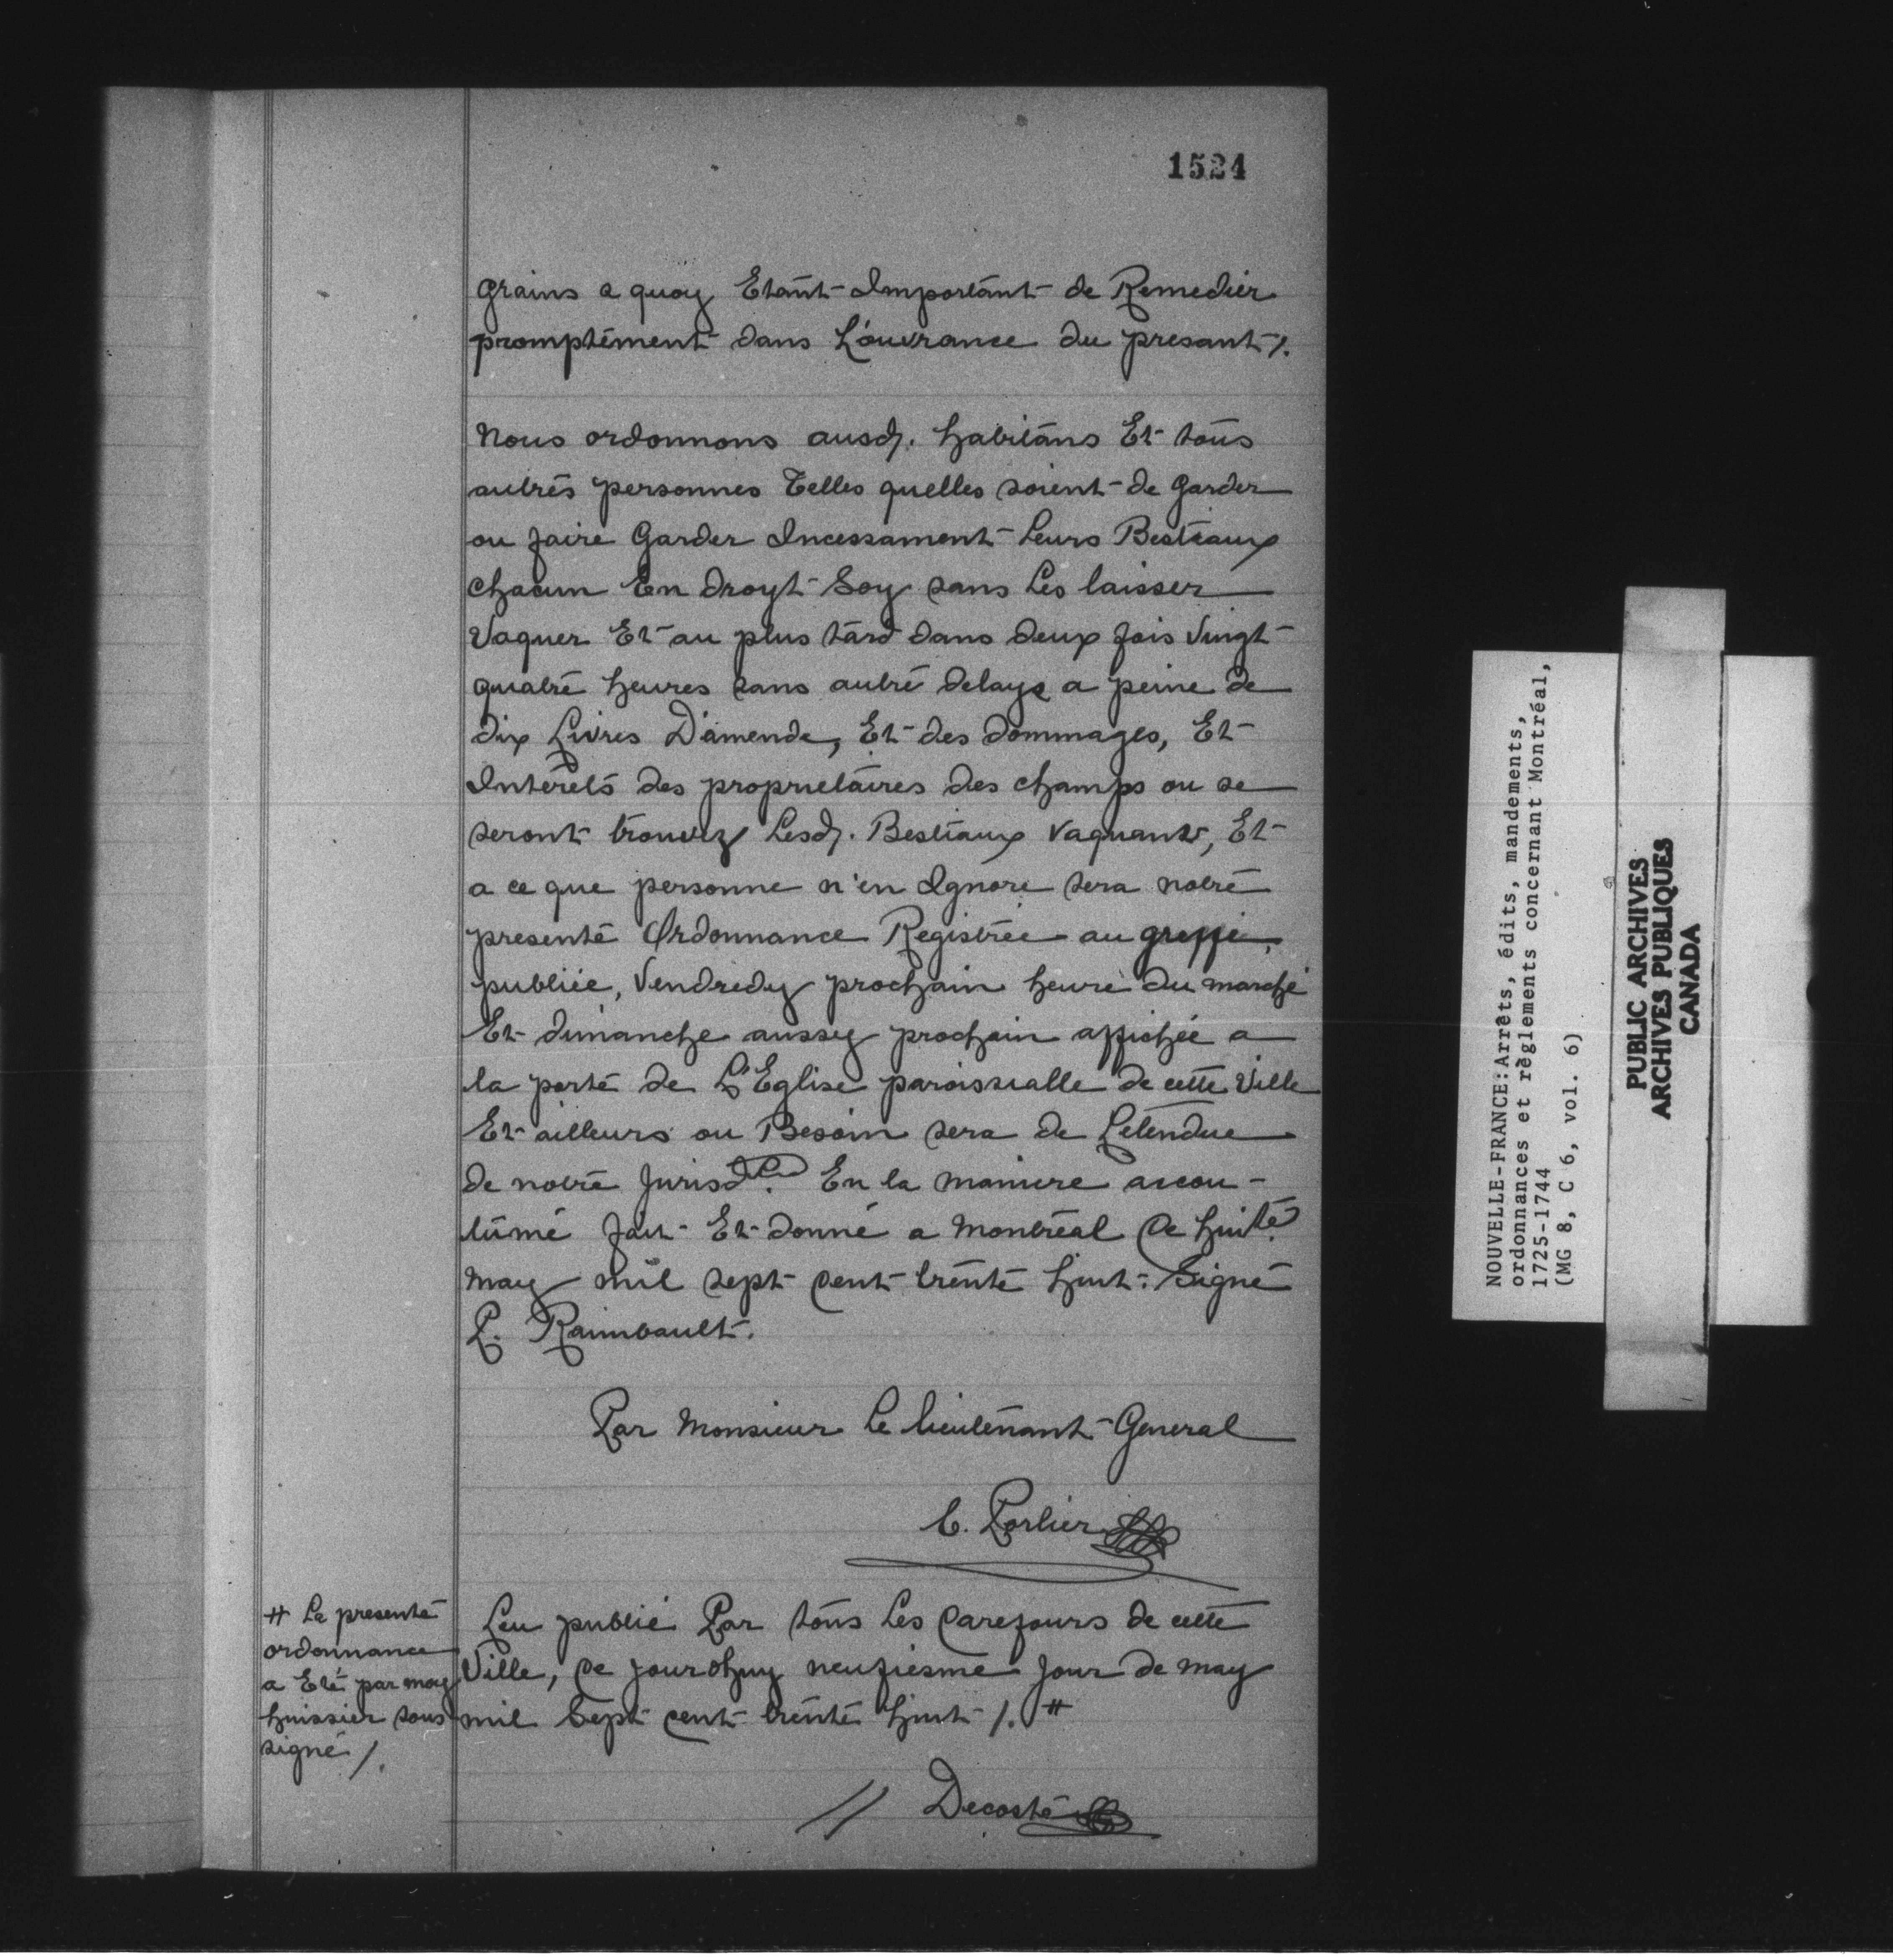 1524
grains a quoy Etant Important de Remedier
promptement dans L'ouvrance du presant /.
Nous ordonnons ausd. habitans Et tous
autres personnes Telles quelles soient de garder
ou faire Garder Incessament Leurs Bestiaux
chacun En droyt Soy sans Les laisser
Vaquer Et au plus tard dans deux fois Vingt
quatre heures sans autre delays a peine de
dix Livres D'amende, Et des dommages, Et
Interets des proprietaires des champs ou se
seront trouvez Lesd. Bestiaux vaquants, Et
a ce que personne n'en Ignore sera notre
presente Ordonnance Registrée au greffe,
publiée, Vendredy prochain heure du marché
Et dimanche aussy prochain affichée a
la porte de L'Eglise paroissialle de cette Ville
Et ailleurs ou Besoin sera de Letendue
de notre Jurisd.on En la maniere accou-
tumé fait Et donné a Montréal Ce huite.
may mil sept cent trente huit. Signé
P. Raimbault.
Par Monsieur Le lieutenant General
C. Porlier
Leu publié Par tous Les Carefours de cette
Ville, Ce jourdhuy neufiesme Jour de may
mil Sept cent trente huit /. #
# La presente
ordonnance
a Eté par moy
huissier sous
signé /.
// Decoste
NOUVELLE-FRANCE: Arrêts, édits, mandements,
ordonnances et règlements concernant Montréal,
1725-1744
(MG 8, C 6, vol. 6)
PUBLIC ARCHIVES
ARCHIVES PUBLIQUES
CANADA